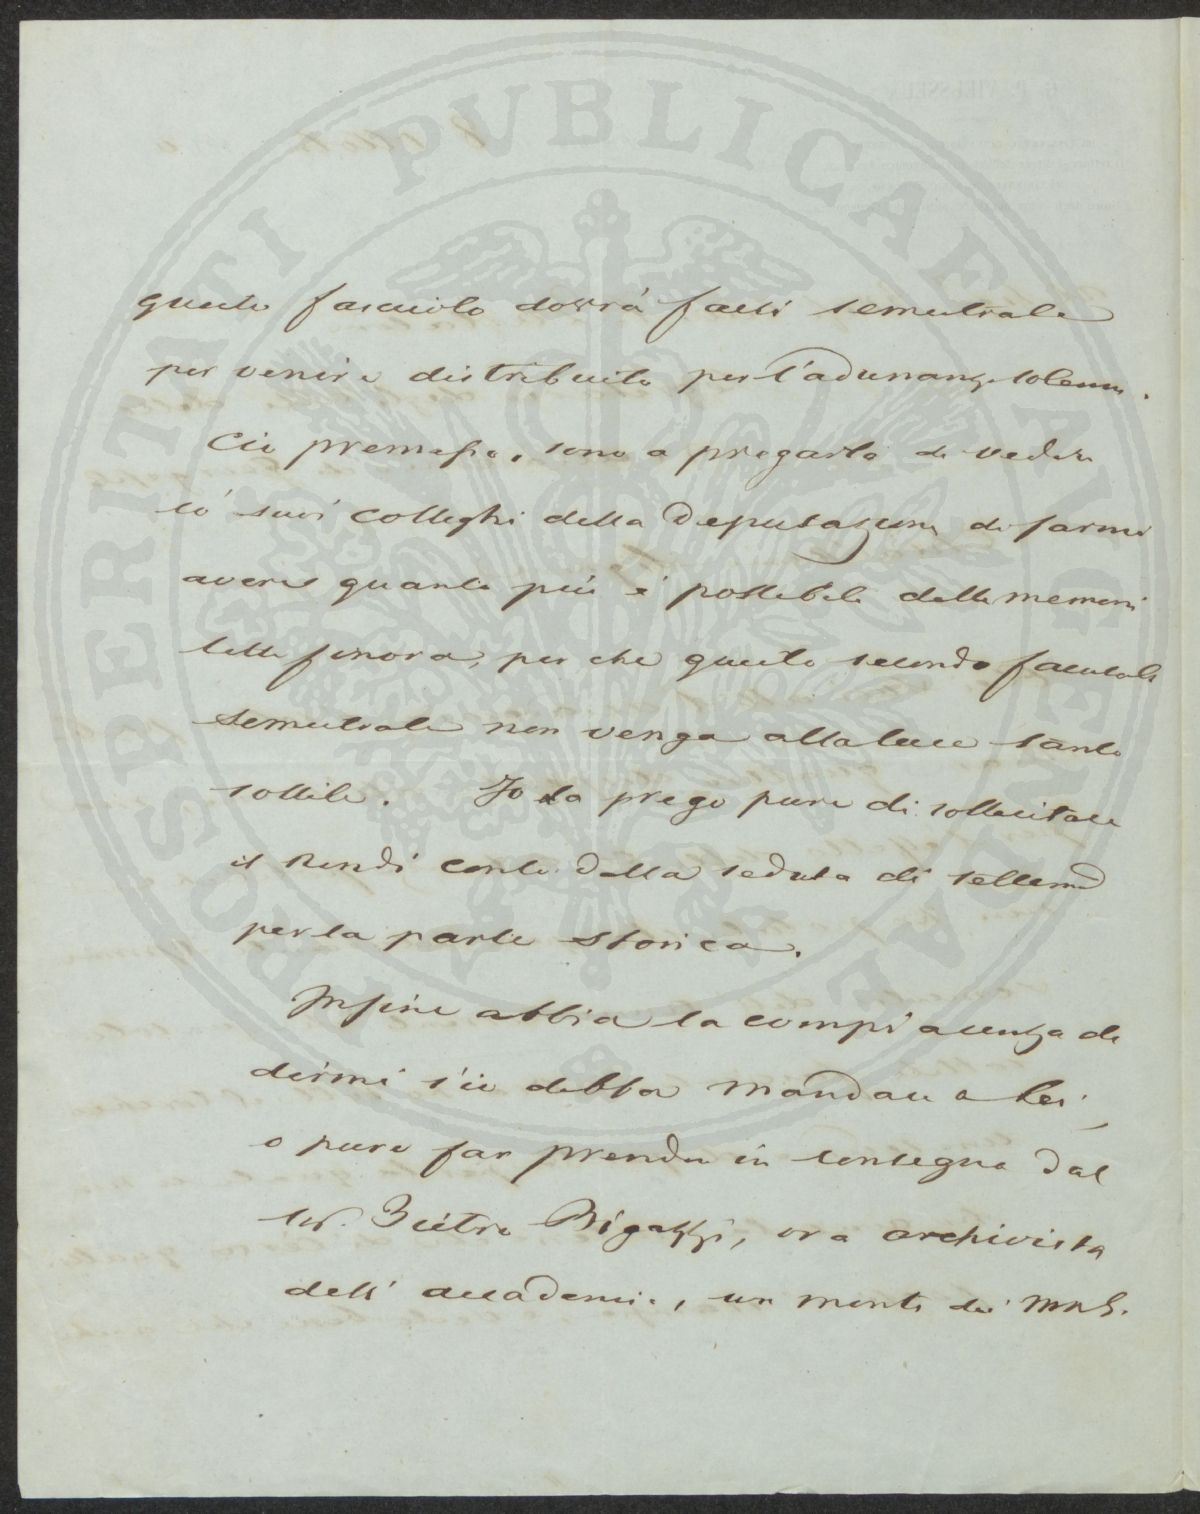 PROSPERITATI PUBLICAE AUGENDAE
questo fascicolo dovrà farsi semestrale
per venire distribuito per l'adunanza solenne.
Ciò premesso, sono a pregarla di vedere
co' suoi colleghi della Deputazione di farmi
avere quanto più è possibile delle memorie
lette finora, per che questo secondo fascicolo
semestrale non venga alla luce tanto
sottile. Io la prego pure di sollecitare
il Rendi conto della seduta di settembre
per la parte storica.
Infine abbia la compiacenza di
dirmi s'io debba mandare a lei
o pure far prendere in consegna dal
sig. Pietro Bigazzi, ora archivista
dell' accademia, un monte di MSS.